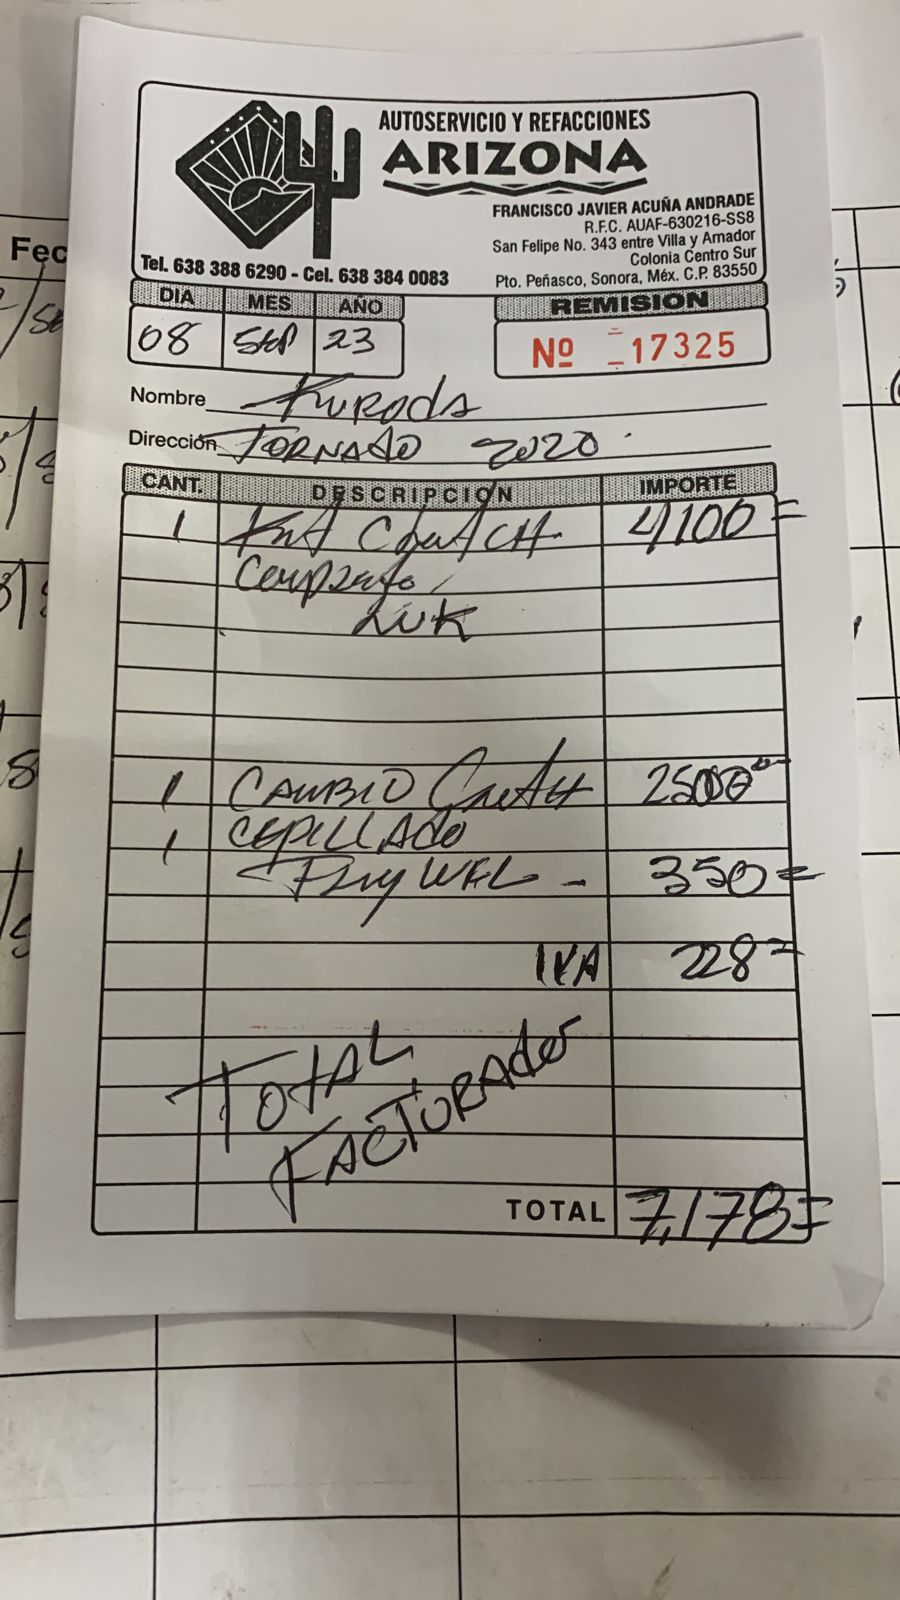 AUTOSERVICIO Y REFACCIONES
ARIZONA
FRANCISCO JAVIER ACUÑA ANDRADE
R.F.C. AUAF-630216-SS8
San Felipe No. 343 entre Villa y Amador
Colonia Centro Sur
Pto. Peñasco, Sonora, Méx. C.P. 83550
Tel. 638 388 6290 - Cel. 638 384 0083
DIA MES AÑO
08 SEP 23
REMISION
Nº 17325
Nombre Kuroda
Dirección TORNADO 2020
CANT. DESCRIPCION IMPORTE
1 Kit Clutch 4100=
Completo
LUK
1 CAMBIO Clutch 2500
1 CEPILLADO
FlyWEL - 350=
IVA 228=
TOTAL
FACTURADO
TOTAL 7,178=
Fec